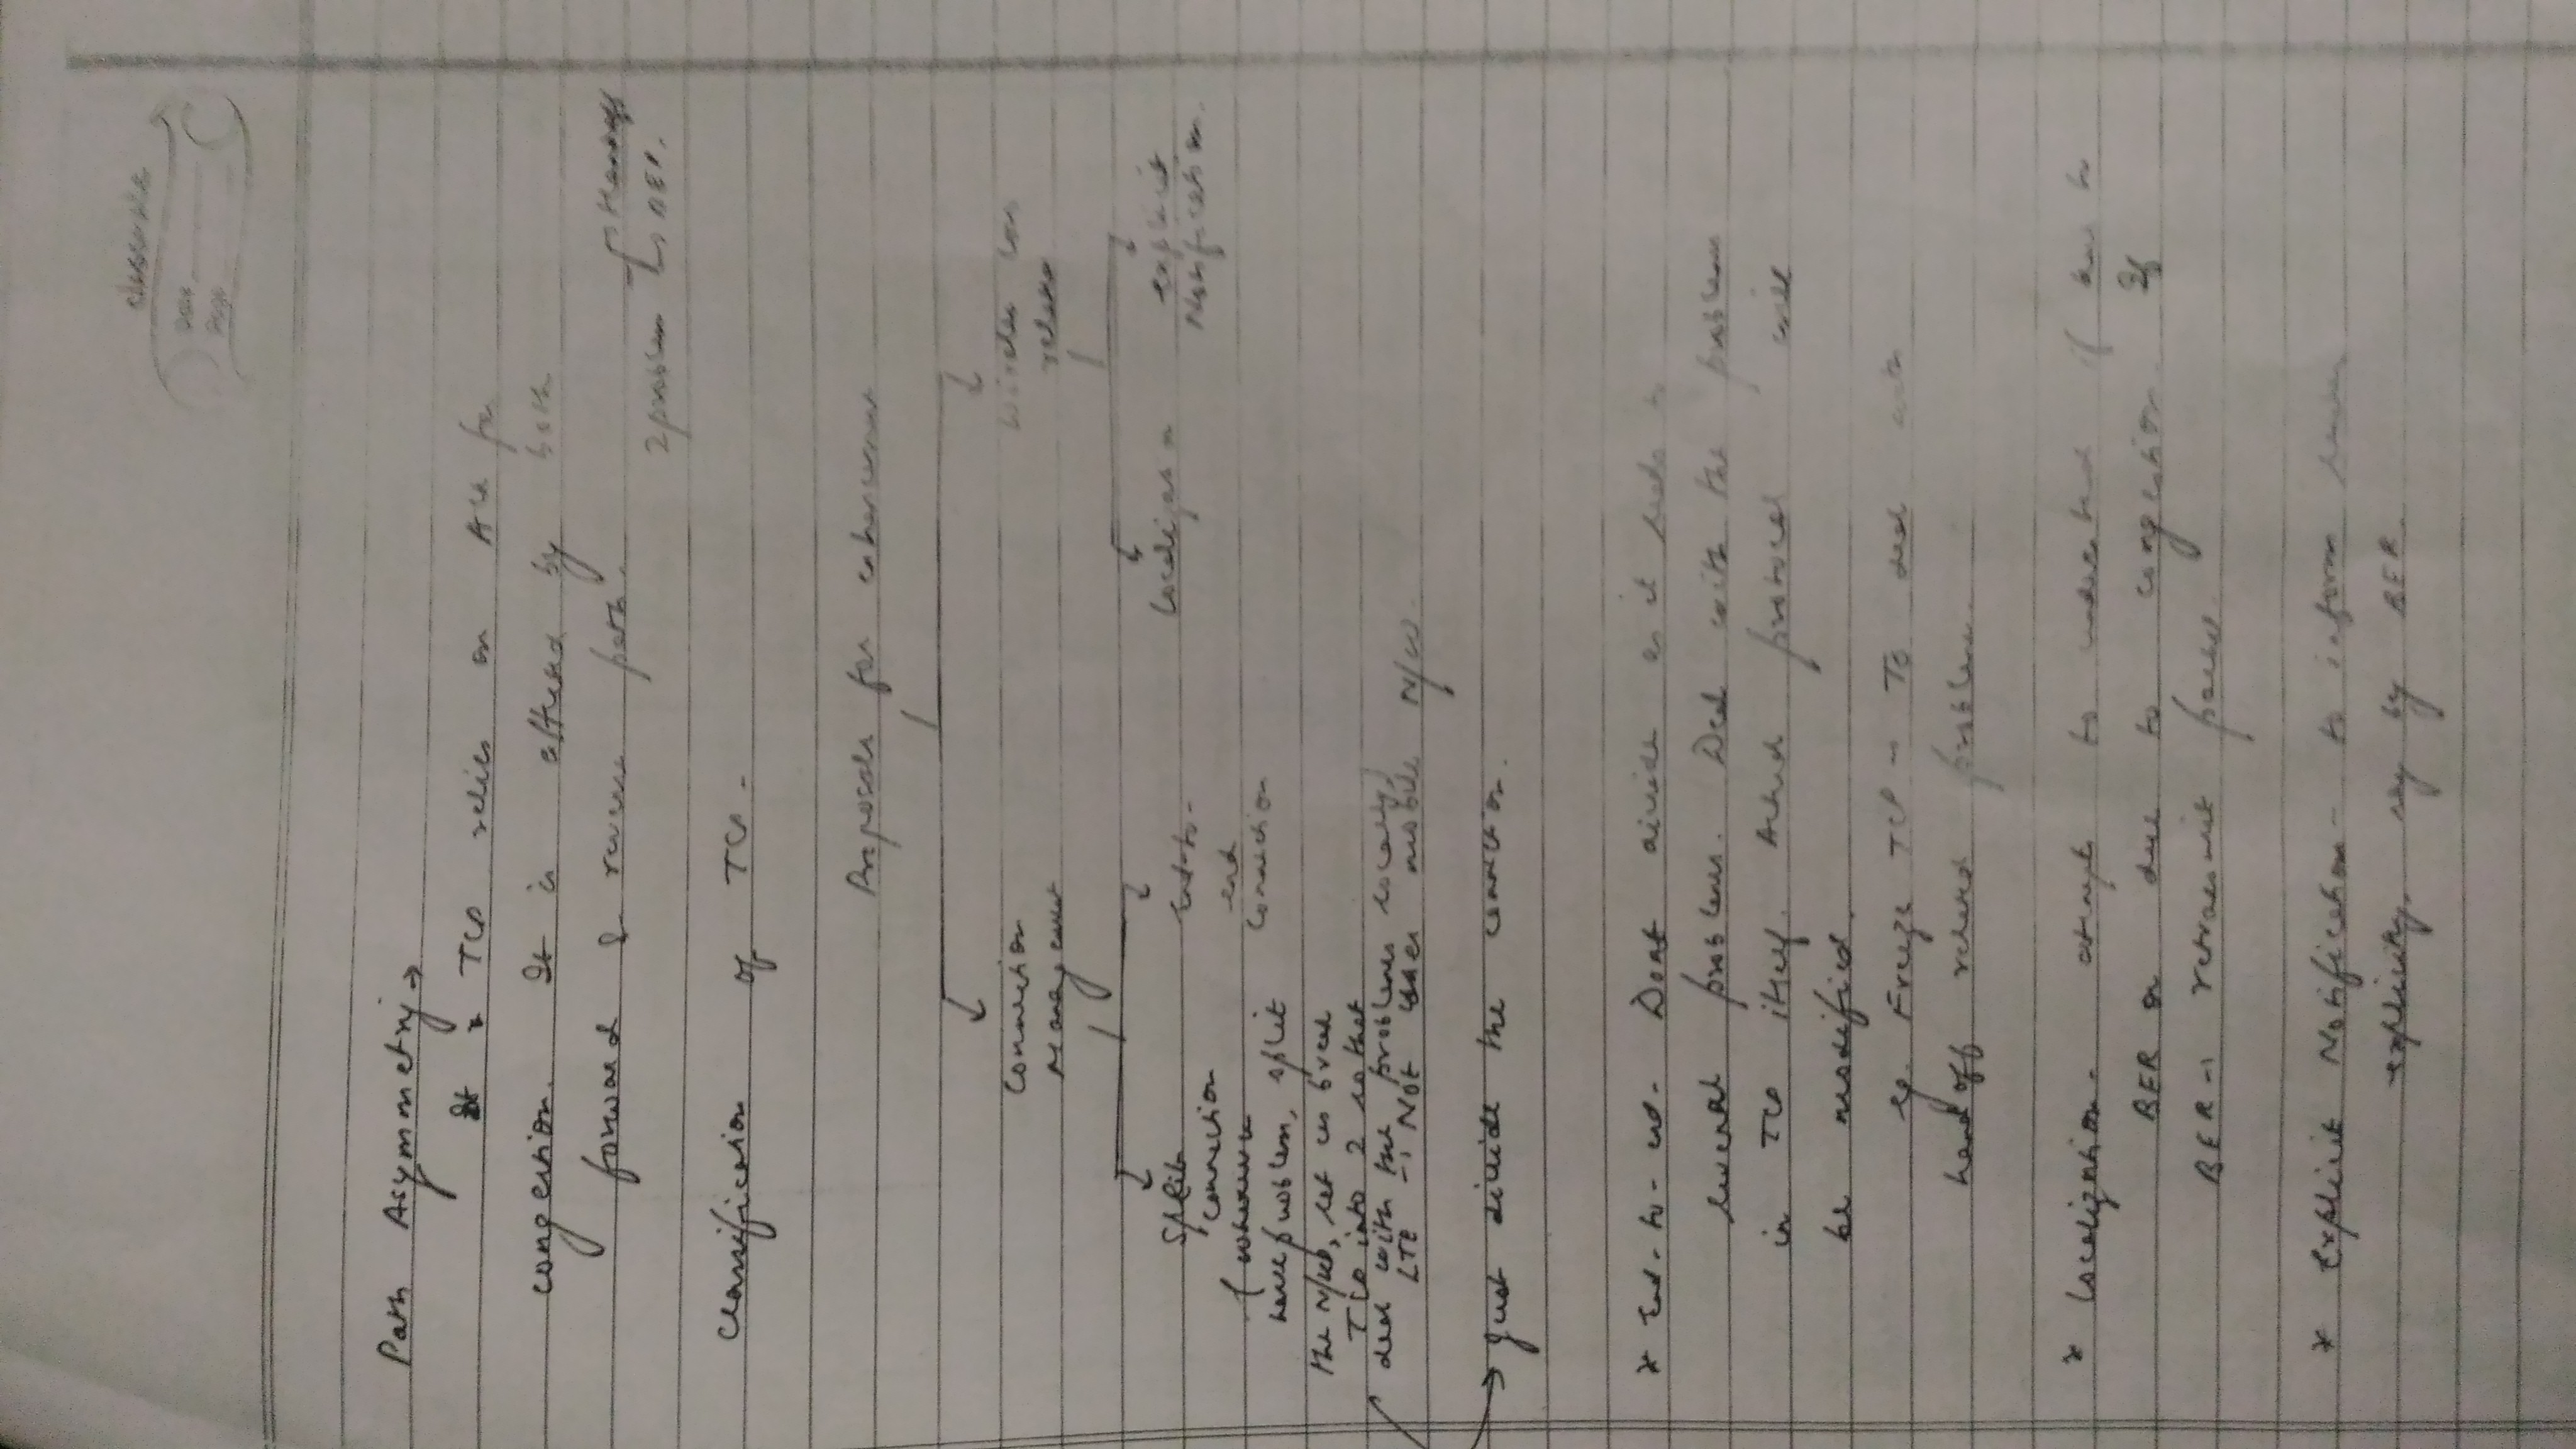 classmate
Date
Page
Path Asymmetry →
TCP relies on ACK for
congestion. It is affected by both
forward & reverse path.
2 problem → Handoff
→ BER.
Classification of TCP -
Proposals for enhancement
Connection
Management
Wireless loss
related
Split
connection
End-to-
end
connection
Localization
explicit
Notification.
(wherever
have problem, split
the N/W, let us break
TCP into 2 so that
deal with the problems locally)
LTE → Not mobile N/W.
→ Just divide the connection.
* End-to-end - Dont divide as it leads to
several problems. Deal with the problems
in TCP itself. Actual protocol will
be modified.
eg. Freeze TCP → To deal with
handoff related problem.
* Localization - attempts to understand if due to
BER or due to congestion. If
BER → retransmit packet.
* Explicit Notification - to inform sender
explicitly, by BER.